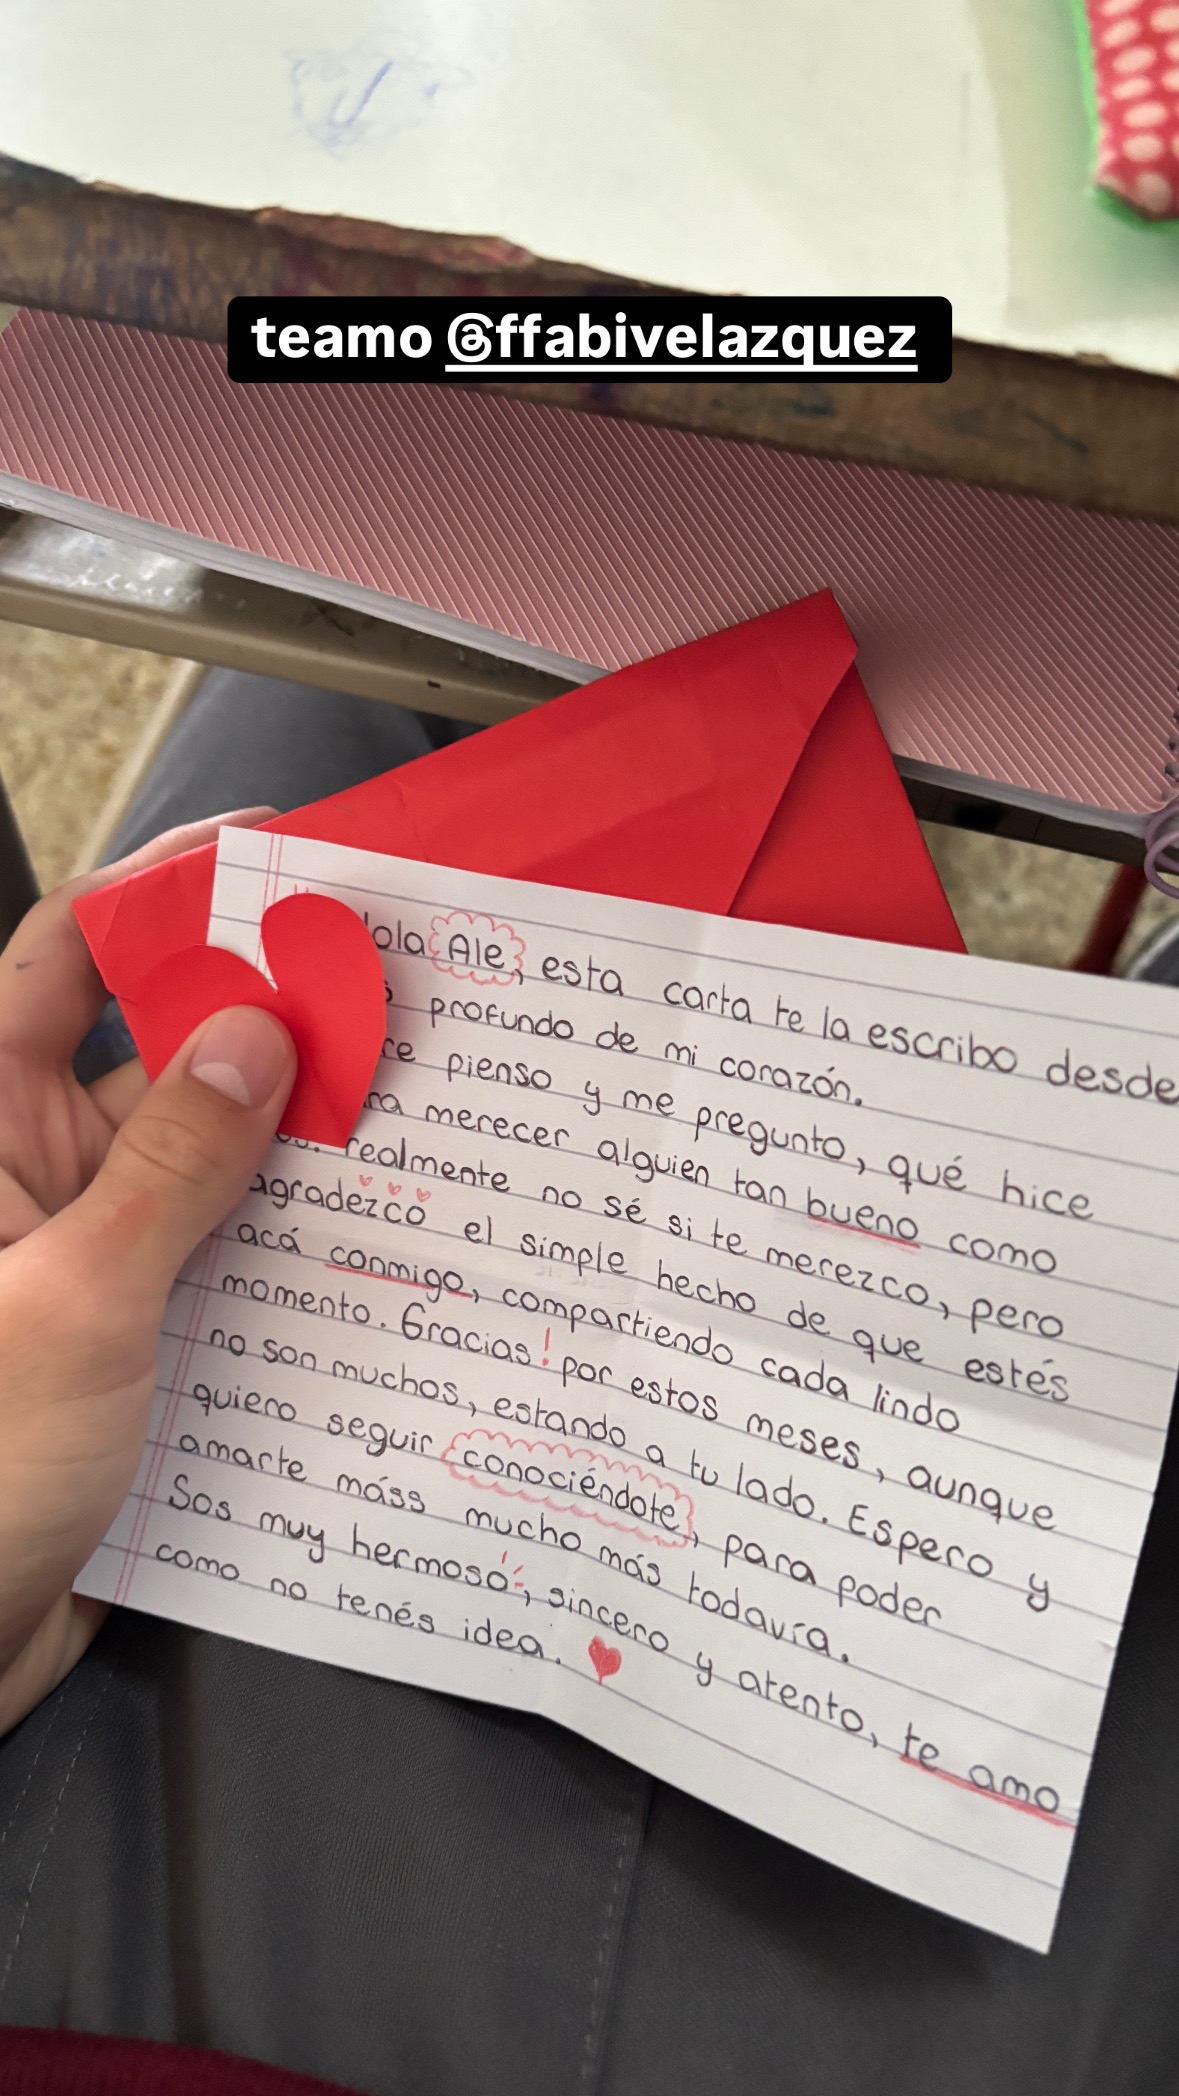 teamo @ffabivelazquez
Ale, esta carta te la escribo desde
profundo de mi corazón.
pienso y me pregunto, qué hice
merecer alguien tan bueno como
realmente no sé si te merezco, pero
agradezco el simple hecho de que estés
acá conmigo, compartiendo cada lindo
momento. Gracias! por estos meses, aunque
no son muchos, estando a tu lado. Espero y
quiero seguir conociéndote, para poder
amarte máss mucho más todavía.
Sos muy hermoso, sincero y atento, te amo
como no tenés idea.